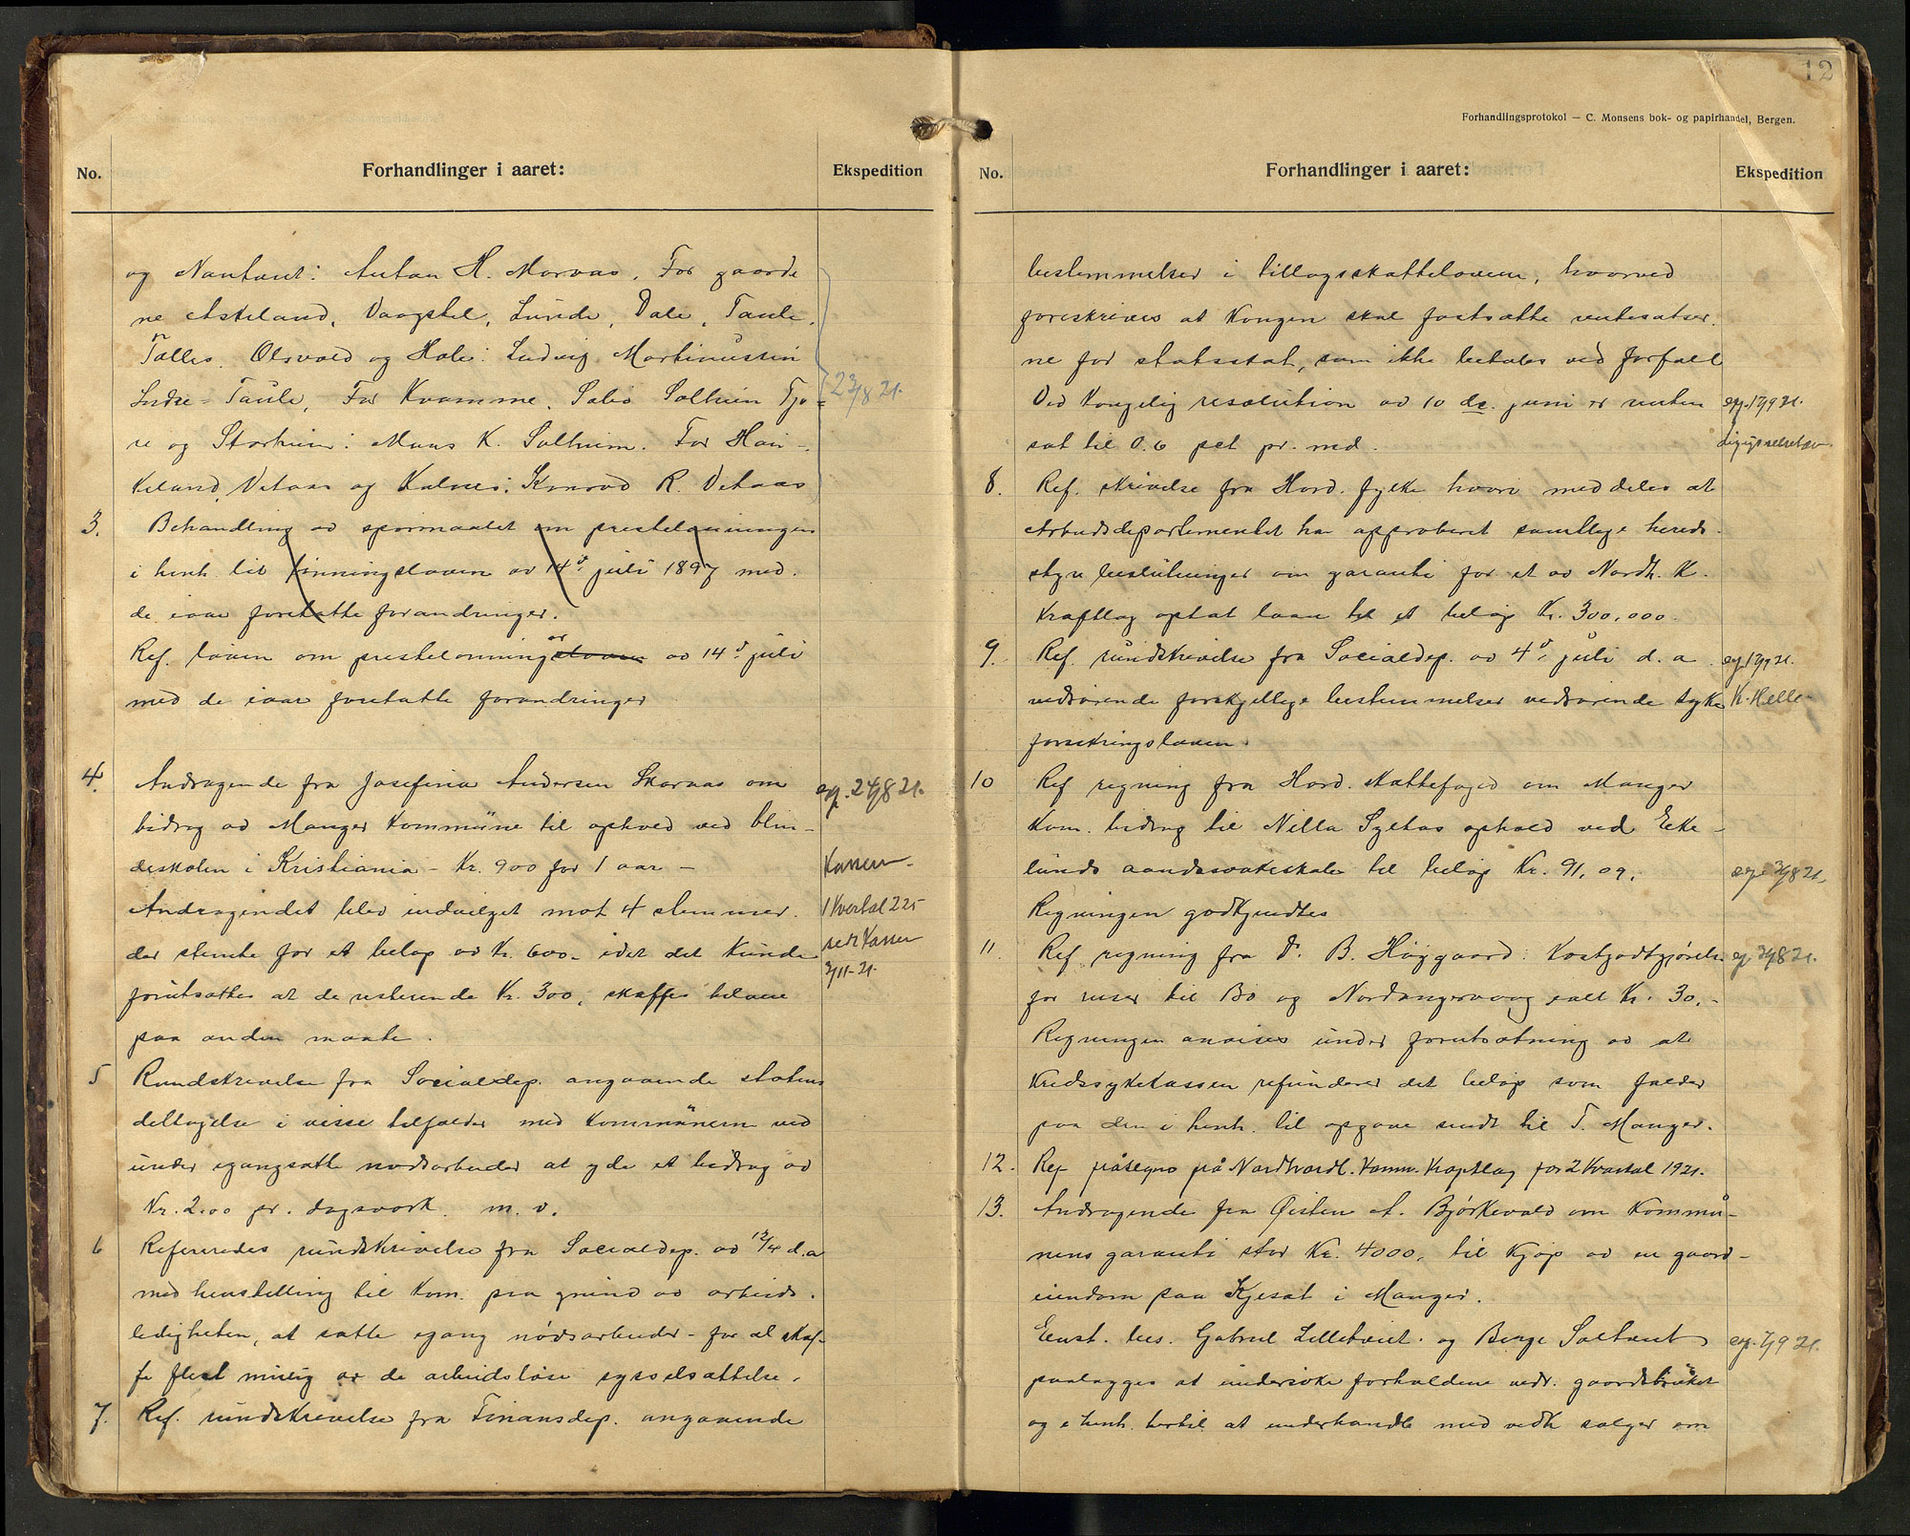 No.
Forhandlinger i aaret:
Ekspedition
og Nautvet: Anton H. Morvas. For gaarde
ne Askeland, Vaagstel, Lunde, Dale, Taule,
Tolles, Olsvold og Hole: Ludvig Martinussen
Indre-Taule, For Kvamme, Solheim Tjo-
re og Storheim: Mons K. Solheim. For Hau-
keland, Vetaas og Kalnes: Konrad R. Vetaas
23/8 21.
3. Behandling av spørmaalet om prestelønningen
i henh til lønningsloven av 14d juli 1897 med
de iaar foretatte forandringer.
Ref. loven om prestelønning loven av 14d juli
med de iaar foretatte forandringer
4. Andragende fra Josefina Andersen Skornas om
exp. 24/8 21.
bidrag av Manger kommune til ophold ved blin-
deskolen i Kristiania - Kr. 900 for 1 aar -
Kassen.
Andragendet blev indvilget mot 4 stemmer
1 Kvartal 225
der stemte for et beløp av Kr. 600.- idet det kunde
forutsættes at de resterende Kr. 300, skaffes tilveie
2/11-21.
paa anden maate.
5 Rundskrivelse fra Socialdep. angaaende statens
deltagelse i visse tilfælder med kommunerne ved
under igangsatte nødsarbeider at yde et bidrag av
Kr. 2.00 pr. dagsverk. m. v.
6 Refereredes rundskrivelse fra Socialdep. av 12/4 d.a
med henstilling til kom. paa grund av arbeids-
ledigheten, at sætte igang nødsarbeider - for at skaf-
fe flest mulig av de arbeidsløse sysselsættelse.
7. Ref. rundskrivelse fra Finansdep. angaaende
12
Forhandlingsprotokol — C. Monsens bok- og papirhandel, Bergen.
No.
Forhandlinger i aaret:
Ekspedition
bestemmelser i tillægsskatteloven, hvorved
foreskrives at Kongen skal fastsætte rentesatser
ne for statsskat, som ikke betales ved forfall
Ved Kongelig resolution av 10 ds. juni er renten
exp. 17/9 21.
sat til 0.6 pct pr. md.
8. Ref. skrivelse fra Hord. fylke hvori meddeles at
Arbeidsdepartementet har approberet samtlige hereds-
styre beslutninger om garanti for et av Nordh. K.
Kraftlag optat laan til et beløp Kr. 300,000.
9. Ref. rundskrivelse fra Socialdep. av 4d juli d. a.
vedrørende forskjellige bestemmelser vedrørende syke
K. Helle
forsikringsloven.
10 Ref regning fra Hord. skattefoged om Manger
kom. bidrag til Nilla Syltas ophold ved Eke-
lunds aandssvakeskole til beløp Kr. 91,09.
Regningen godkjendtes
11. Ref. regning fra Dr. B. Høygaard: Kostgodtgjørelse
for reiser til Bø og Nordangervaag ialt Kr. 30.-
Regningen anvises under forutsætning av at
Kredssykekassen refunderer det beløp som falder
paa den i henh. til opgave sendt til T. Manger.
12. Ref påtegn på Nordhordl. Komm. Kraftlag for 2 Kvartal 1921.
13. Andragende fra Øisten A. Bjørkevold om kommu-
nens garanti stor Kr. 4000, til kjøp av en gaard-
eiendom paa Kjesat i Manger.
Enst. bes. Gabriel Lilletvet og Berge Soltvet
exp. 7/9 21.
paalægges at undersøke forholdene vedr. gaardsbruket
og i henh. hertil at underhandle med vedk sælger om